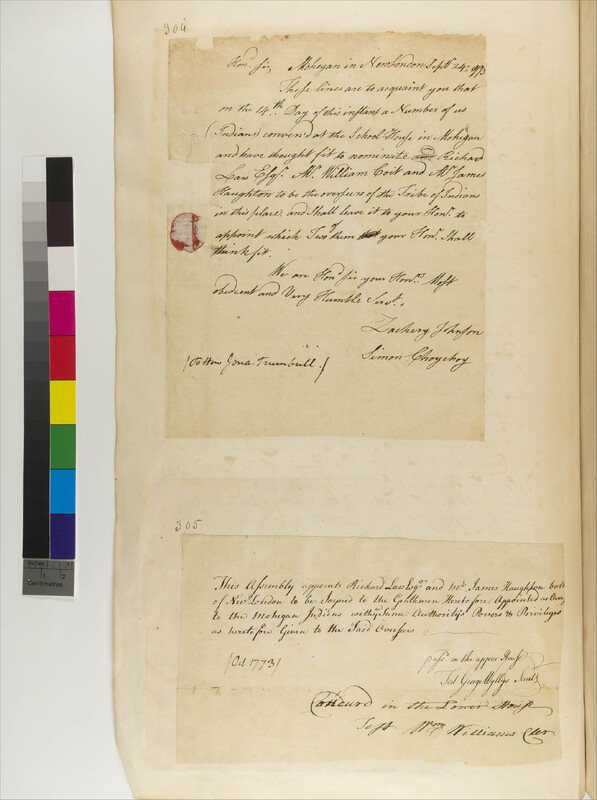 304
Honr. Sir, Mohegan in New London Septr. 24th 1773
These lines are to acquaint you that
on the 14th. Day of this instant a Number of us
(Indians) conven'd at the School House in Mohegan
and have thought fit to nominate Richard
Law Esqr. Mr. William Coit and Mr. James
Haughton to be the overseers of the Tribe of Indians
in this place, and Shall leave it to your Honr. to
appoint which Two of them your Honr. Shall
think fit.
We are Hond. Sir your Honrs. Most
obedient and Very Humble Servt.
Zachery Johnson
Simon Choychoy
(To Hon Jona. Trumbull.)
305
This Assembly appoints Richard Law Esqr. and Mr. James Haughton both
of New London to be Joyned to the Gentlemen Heretofore Appointed as
to the Mohegan Indians with the Same Authoritys Powers & Priviliges
as heretofore Given to the Said Overseers
(Oct. 1773)
pass'd in the upper House
Test George Wyllys Secrety
Concurd in the Lower House
Test Wm. Williams Cler
Inches 1
1 2
Centimetres